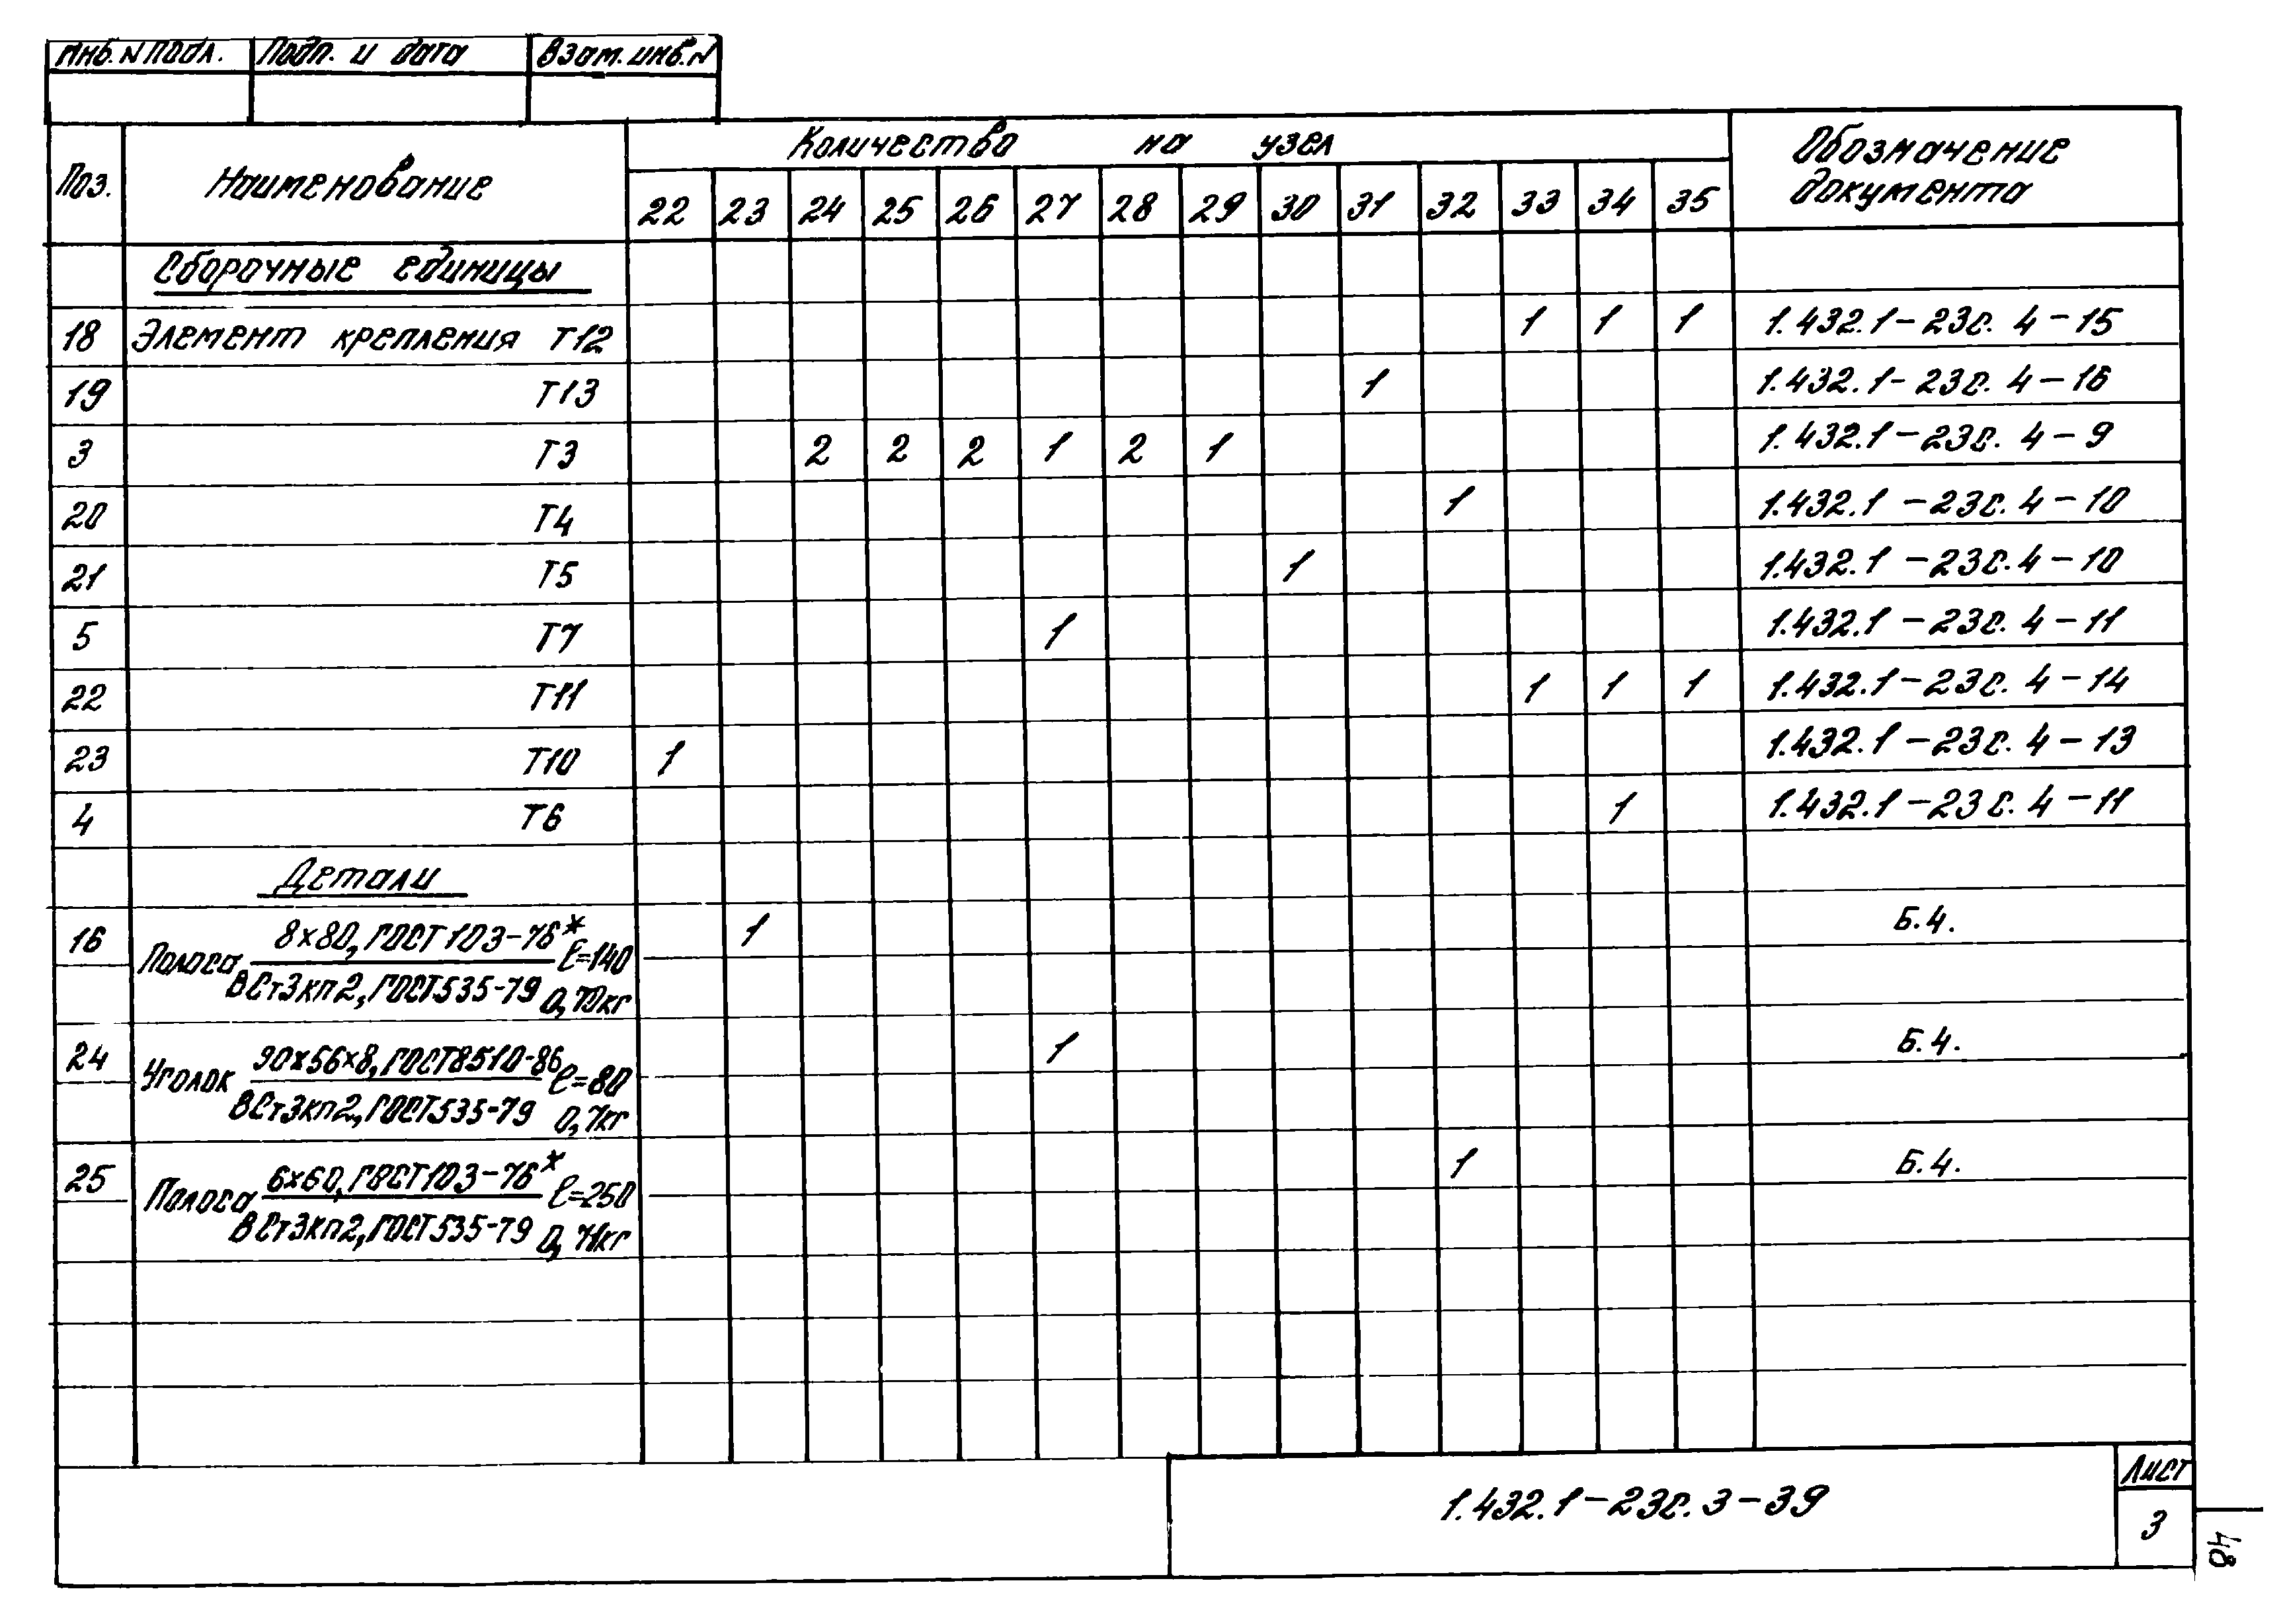 Инв. N подл. Подп. и дата Взам. инв. N
Поз. Наименование Количество на узел Обозначение
документа
22 23 24 25 26 27 28 29 30 31 32 33 34 35
Сборочные единицы
18 Элемент крепления Т12 1 1 1 1.432.1-23с. 4-15
19 Т13 1 1.432.1-23с. 4-16
3 Т3 2 2 2 1 2 1 1.432.1-23с. 4-9
20 Т4 1 1.432.1-23с. 4-10
21 Т5 1 1.432.1-23с. 4-10
5 Т7 1 1.432.1-23с. 4-11
22 Т11 1 1 1 1.432.1-23с. 4-14
23 Т10 1 1.432.1-23с. 4-13
4 Т6 1 1.432.1-23с. 4-11
Детали
16 Полоса 8х80, ГОСТ 103-76* ℓ=140 1 Б.4.
ВСт3кп2, ГОСТ535-79 0,70кг
24 Уголок 90х56х8, ГОСТ8510-86 ℓ=80 1 Б.4.
ВСт3кп2, ГОСТ535-79 0,7кг
25 Полоса 6х60, ГОСТ103-76* ℓ=250 1 Б.4.
ВСт3кп2, ГОСТ535-79 0,71кг
1.432.1-23с. 3-39
Лист
3
48